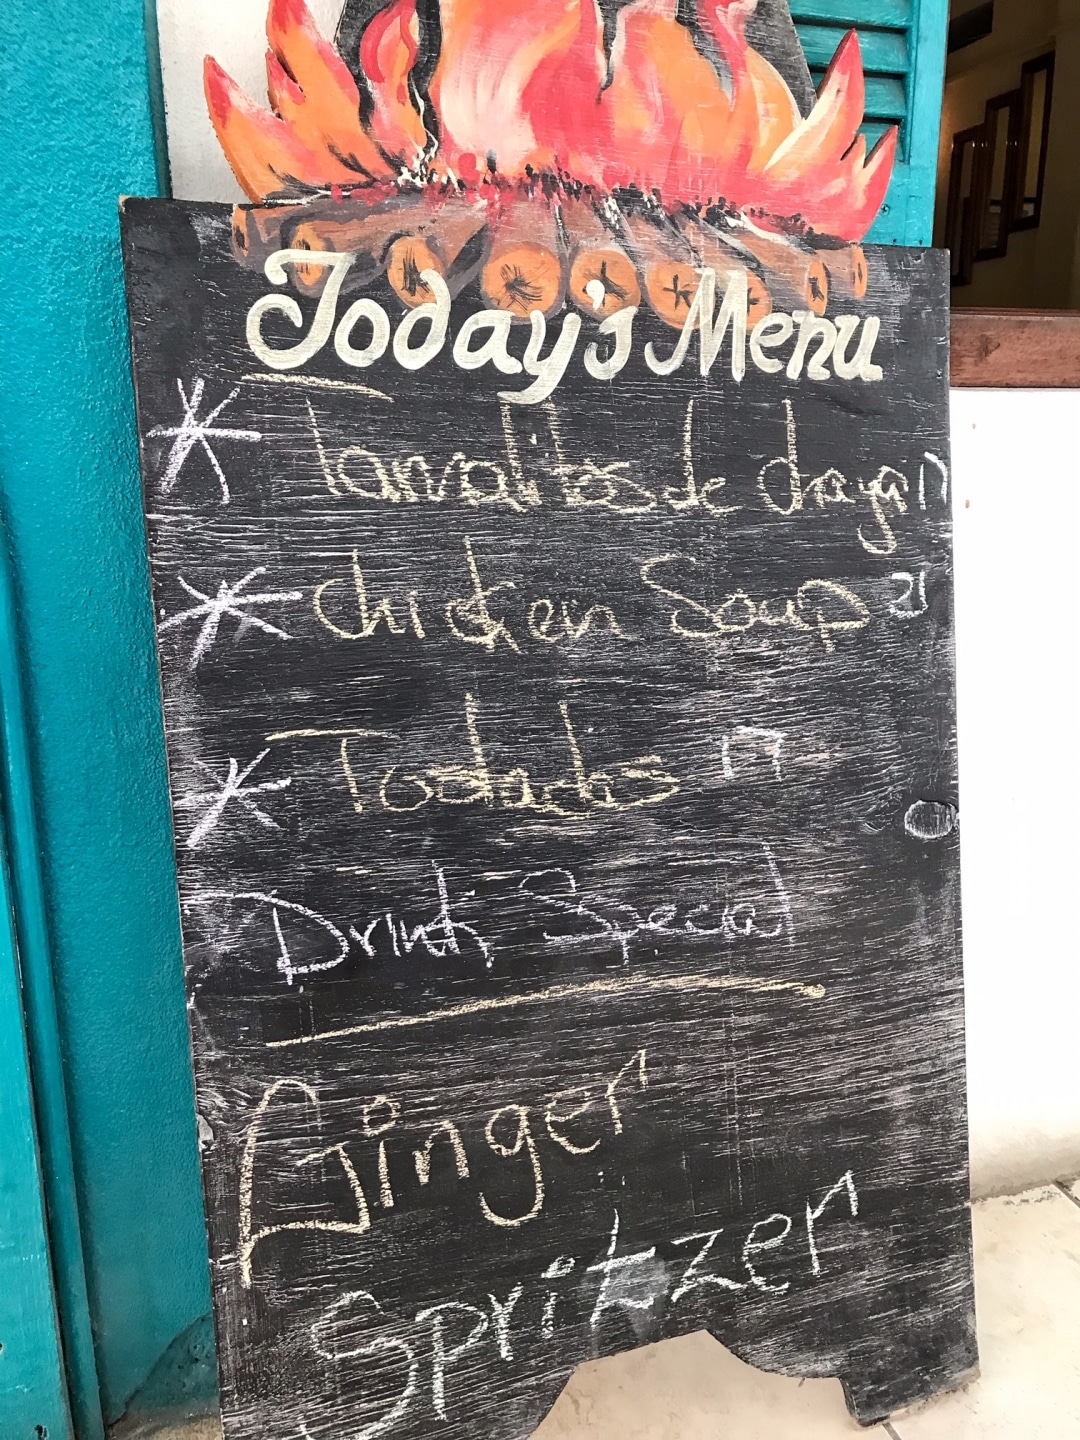 Today's Menu
Tamalitos de chaya 17
Chicken Soup 21
Tostadas 17
Drink Special
Ginger
Spritzer